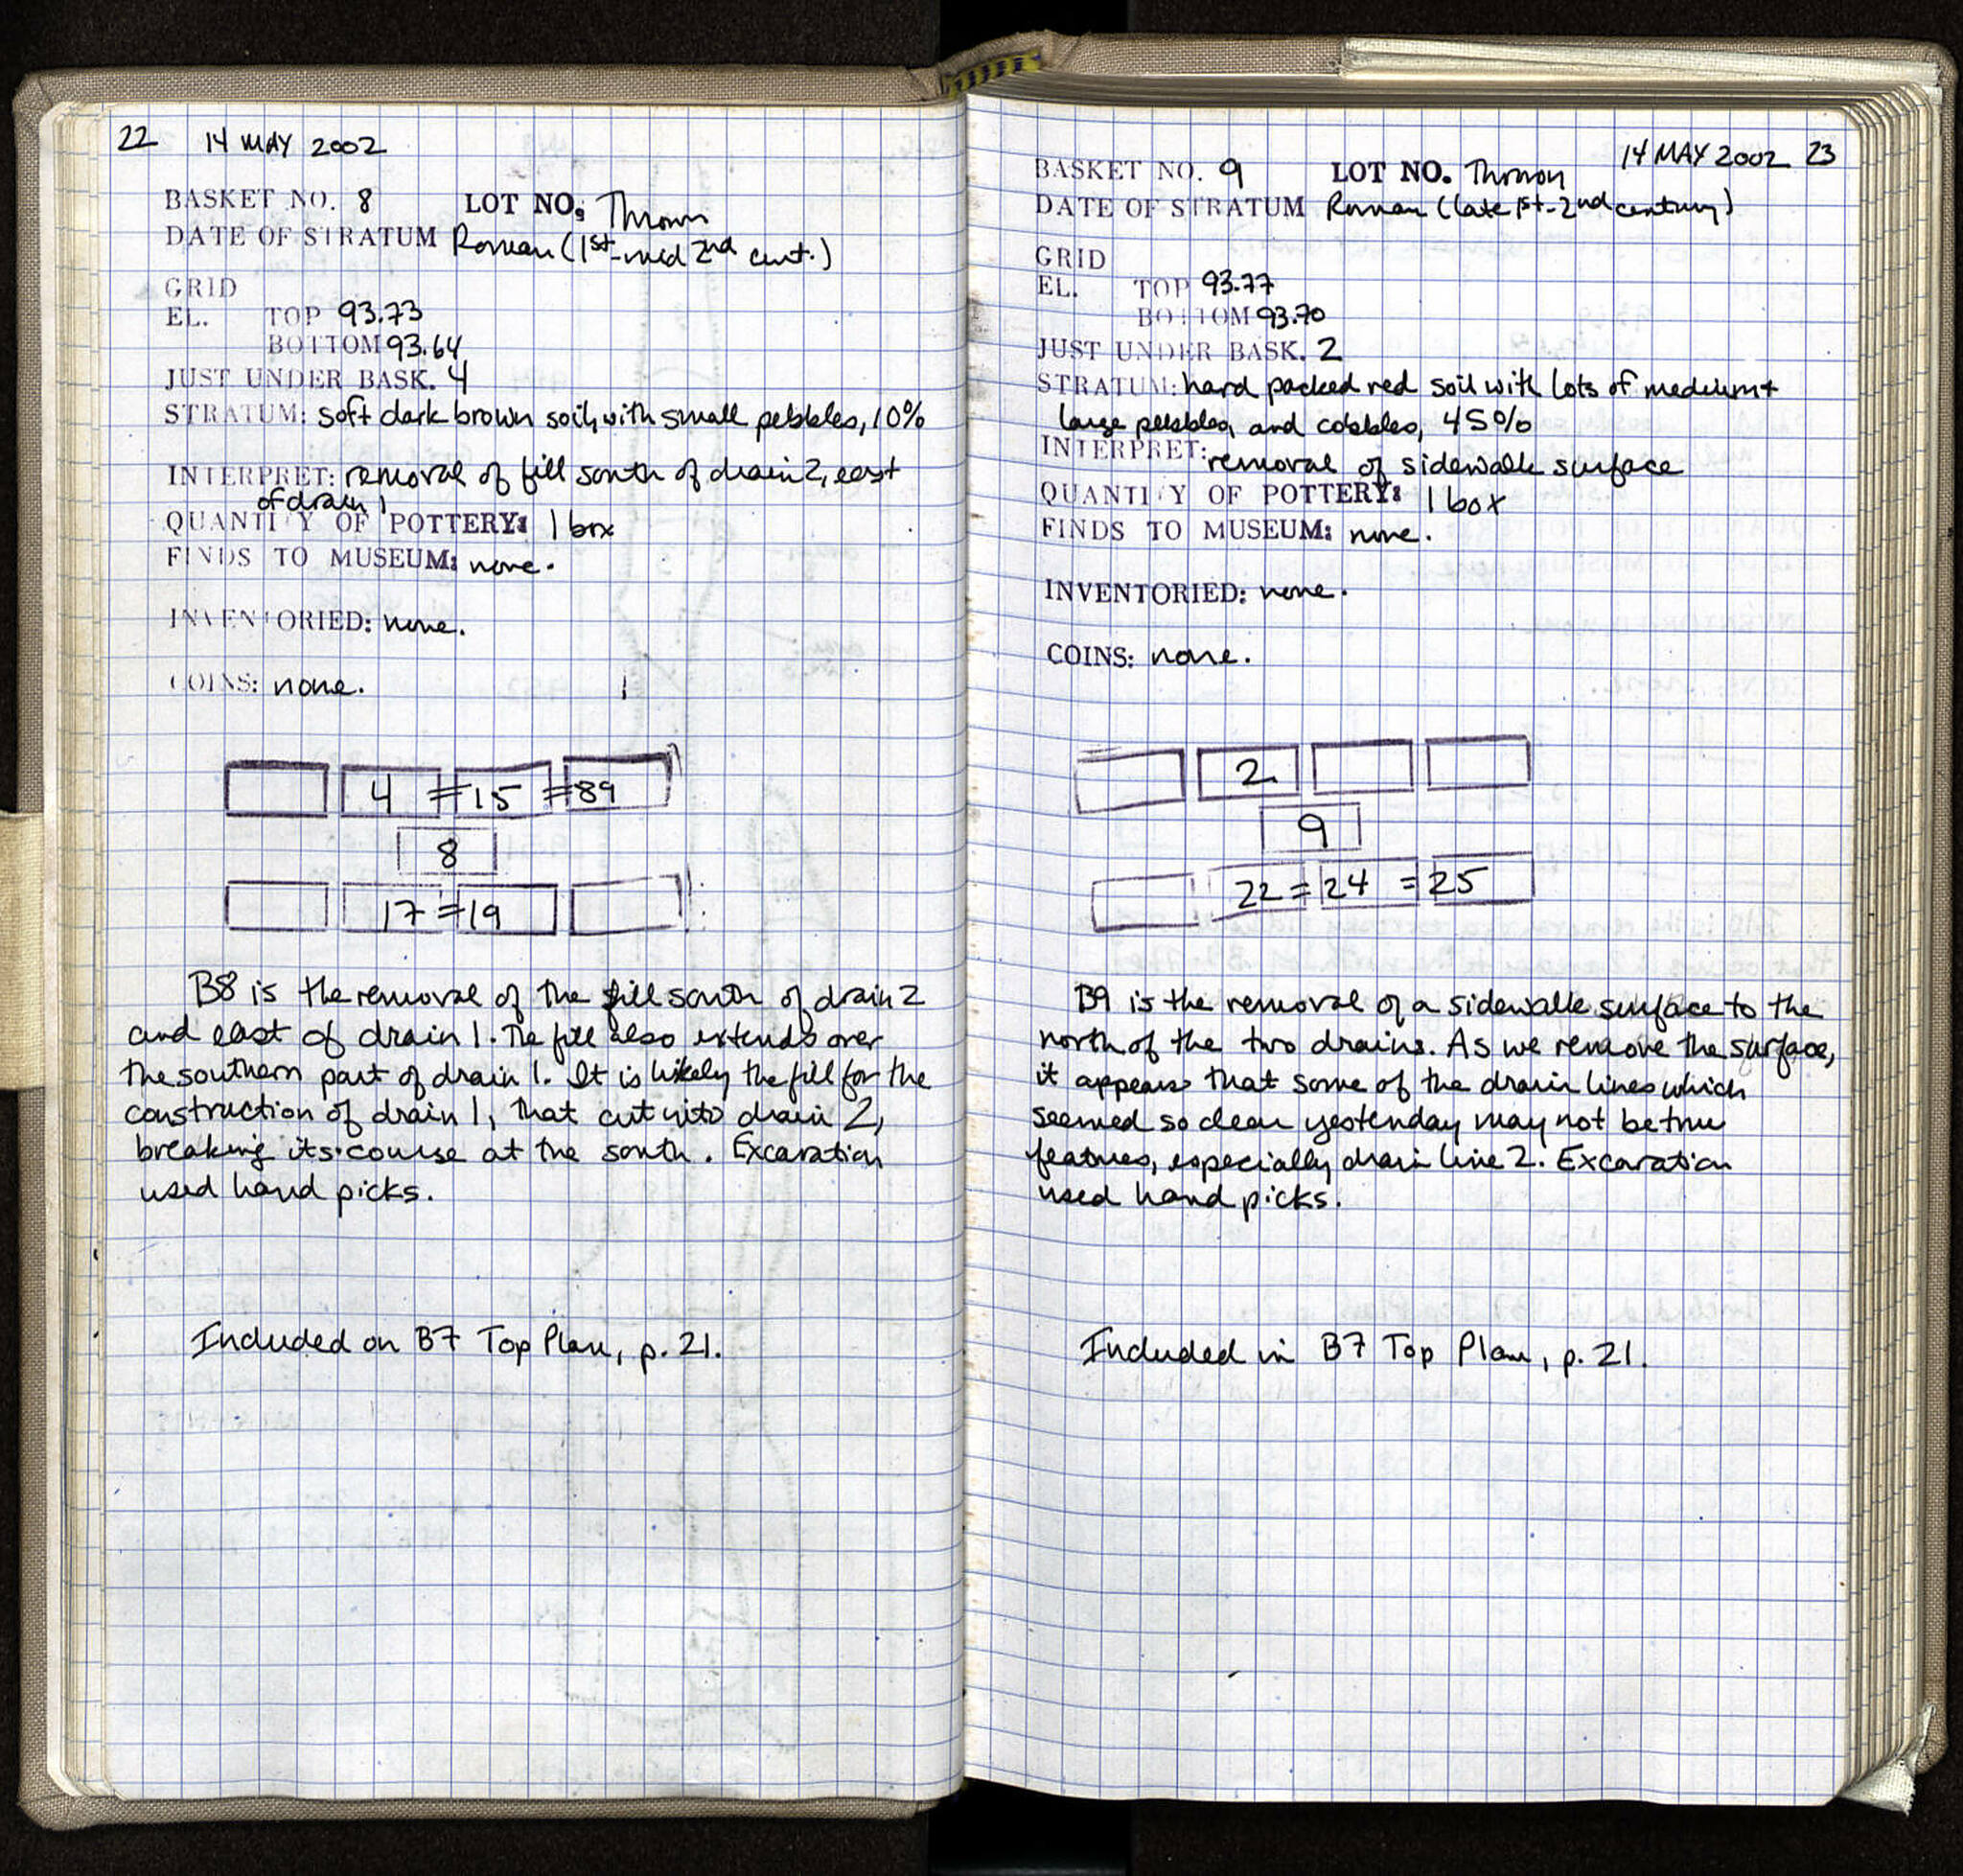 22 14 MAY 2002
BASKET NO. 8 LOT NO. Thrown
DATE OF STRATUM Roman (1st-mid 2nd cent.)
GRID
EL. TOP 93.73
BOTTOM 93.64
JUST UNDER BASK. 4
STRATUM: soft dark brown soil, with small pebbles, 10%
INTERPRET: removal of fill south of drain 2, east
of drain 1
QUANTITY OF POTTERY: 1 box
FINDS TO MUSEUM: none.
INVENTORIED: none.
COINS: none.
4 = 15 = 89
8
17 = 19
B8 is the removal of the fill south of drain 2
and east of drain 1. The fill also extends over
the southern part of drain 1. It is likely the fill for the
construction of drain 1, that cut into drain 2,
breaking its course at the south. Excavation
used hand picks.
Included on B7 Top Plan, p. 21.
14 MAY 2002 23
BASKET NO. 9 LOT NO. Thrown
DATE OF STRATUM Roman (late 1st-2nd century)
GRID
EL. TOP 93.77
BOTTOM 93.70
JUST UNDER BASK. 2
STRATUM: hard packed red soil with lots of medium +
large pebbles, and cobbles, 45%
INTERPRET: removal of sidewalk surface
QUANTITY OF POTTERY: 1 box
FINDS TO MUSEUM: none.
INVENTORIED: none.
COINS: none.
2
9
22 = 24 = 25
B9 is the removal of a sidewalk surface to the
north of the two drains. As we remove the surface,
it appears that some of the drain lines which
seemed so clear yesterday may not be true
features, especially drain line 2. Excavation
used hand picks.
Included in B7 Top Plan, p. 21.